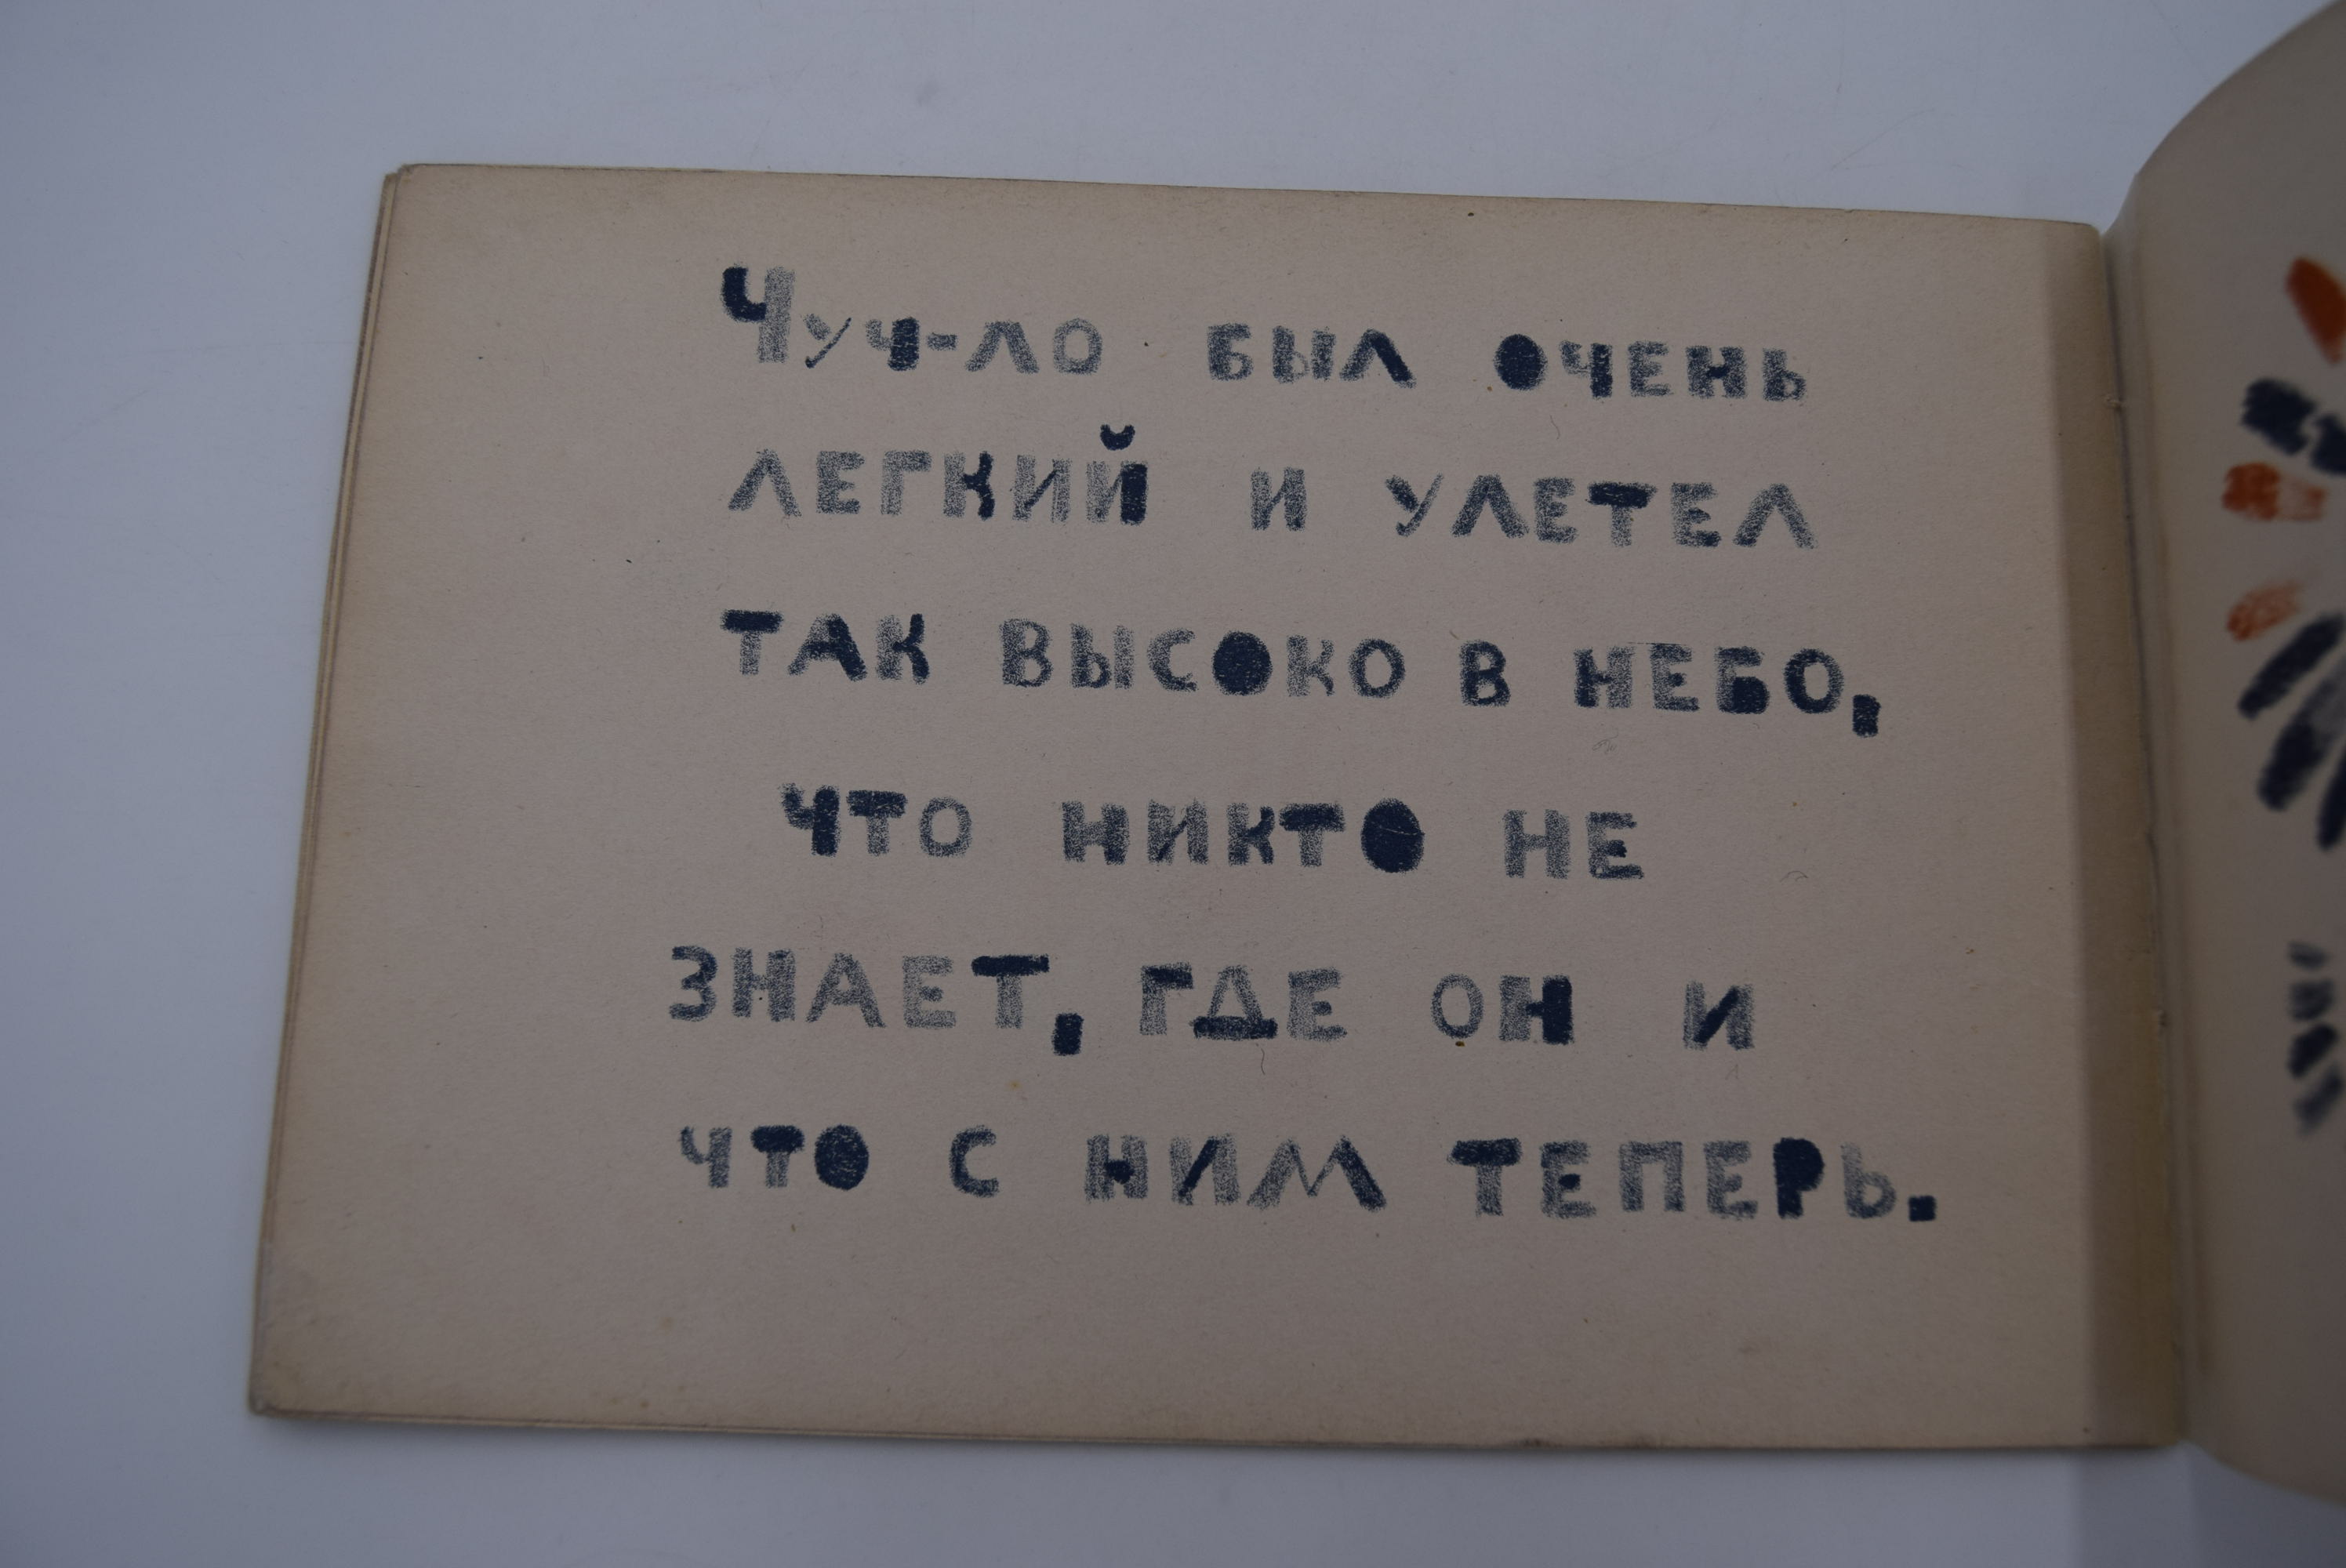 Чуч-ло был очень
легкий и улетел
так высоко в небо,
что никто не
знает, где он и
что с ним теперь.